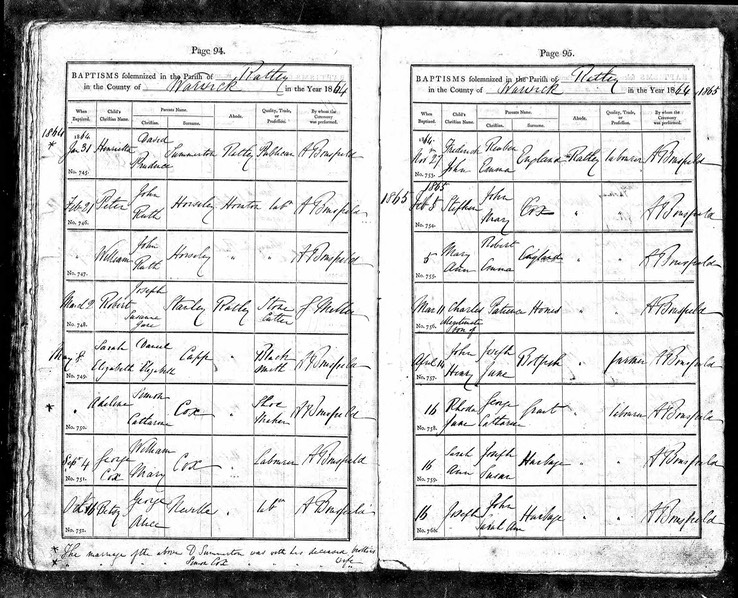 Page 94.
BAPTISMS solemnized in the Parish of Ratley
in the County of Warwick in the Year 1864
When Baptized. Child's Christian Name. Parents Name. Christian. Surname. Abode. Quality, Trade, or Profession. By whom the Ceremony was performed.
1864
* 1864 Jan 31 Henrietta David Prudence Summerton Ratley Publican A Bonsfield
No. 745.
Feb 21 Peter John Ruth Horseley Hornton Labr A Bonsfield
No. 746.
" William John Ruth Horseley " " A Bonsfield
No. 747.
March 2 Robert Joseph Susanna Jane Stanley Ratley Stone Cutter
No. 748.
May 8 Sarah Elizabeth Daniel Elizabeth Capp " Black Smith A Bonsfield
No. 749.
* " Adeline Simon Catharine Cox " Shoe Maker A Bonsfield
No. 750.
Sept 4 George Cox William Mary Cox " Labourer A Bonsfield
No. 751.
Oct 16 Betsy George Alice Neville " Labr A Bonsfield
No. 752.
* The marriage of the above D Summerton was with his deceased brothers Wife
* " " " " Simon Cox " " " "
Page 95.
BAPTISMS solemnized in the Parish of Ratley
in the County of Warwick in the Year 1864 1865
When Baptized. Child's Christian Name. Parents Name. Christian. Surname. Abode. Quality, Trade, or Profession. By whom the Ceremony was performed.
1864 Nov 27 Frederick John Reuben Emma England Ratley Labourer A Bonsfield
No. 753.
1865 1865 Feb 5 Stephen John Mary Cox " " A Bonsfield
No. 754.
5 Mary Ann Robert Emma England " A Bonsfield
No. 755.
Mar 11 Charles Illegitimate son of Patience Hones " A Bonsfield
No. 756.
April 14 John Henry Joseph Jane " Farmer A Bonsfield
No. 757.
16 Rhoda Jane George Catharine Grant " Labourer A Bonsfield
No. 758.
16 Sarah Ann Joseph Susan Harbage " " A Bonsfield
No. 759.
16 Joseph John Sarah Ann Harbage " " A Bonsfield
No. 760.